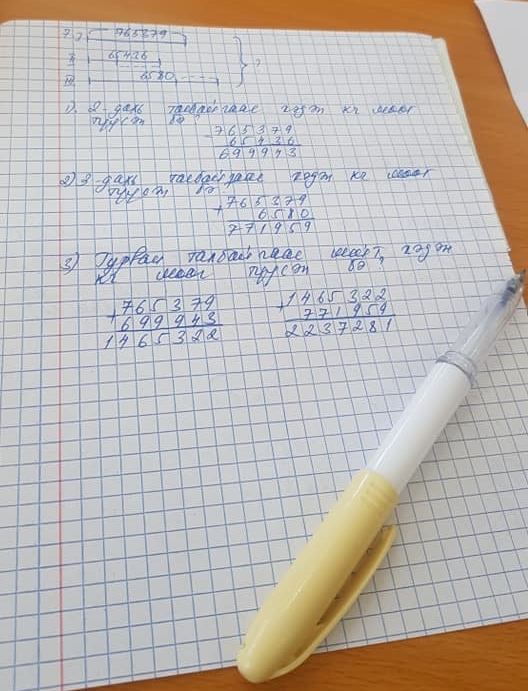 I 765379
II 65436
III 6580 ?
1). 2-дахь талбайгаас хэдэн кг мөөг
түүсэн бэ?
- 765379
65436
699943
2) 3-дахь талбайгаас хэдэн кг мөөг
түүсэн бэ
+ 765379
6580
771959
3) Гурван талбайгаас нийт хэдэн
кг мөөг түүсэн бэ
+ 765379
699943
1465322
+ 1465322
771959
2237281